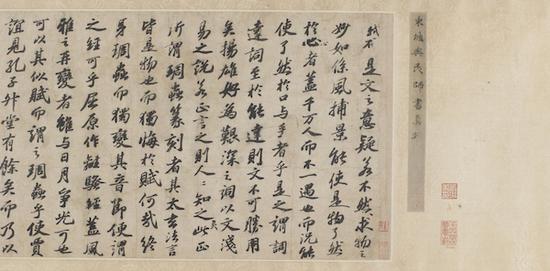 東坡與民師書真
軾不 是文之意疑若不然求物之
妙如係風捕景能使是物了然
於心者蓋千萬人而不一遇也而況能
使了然於口與手者乎是之謂詞
達詞至於能達則文不可勝用
矣揚雄好為艱深之詞以文淺
易之說若正言之則人人知之矣此正
所謂琱蟲篆刻者其太玄法言
皆是物也而獨悔於賦何哉終
身琱蟲而獨變其音節便謂
之經可乎屈原作離騷經蓋風
雅之再變者雖與日月爭光可也
可以其似賦而謂之琱蟲乎使賈
誼見孔子升堂有餘矣而乃以